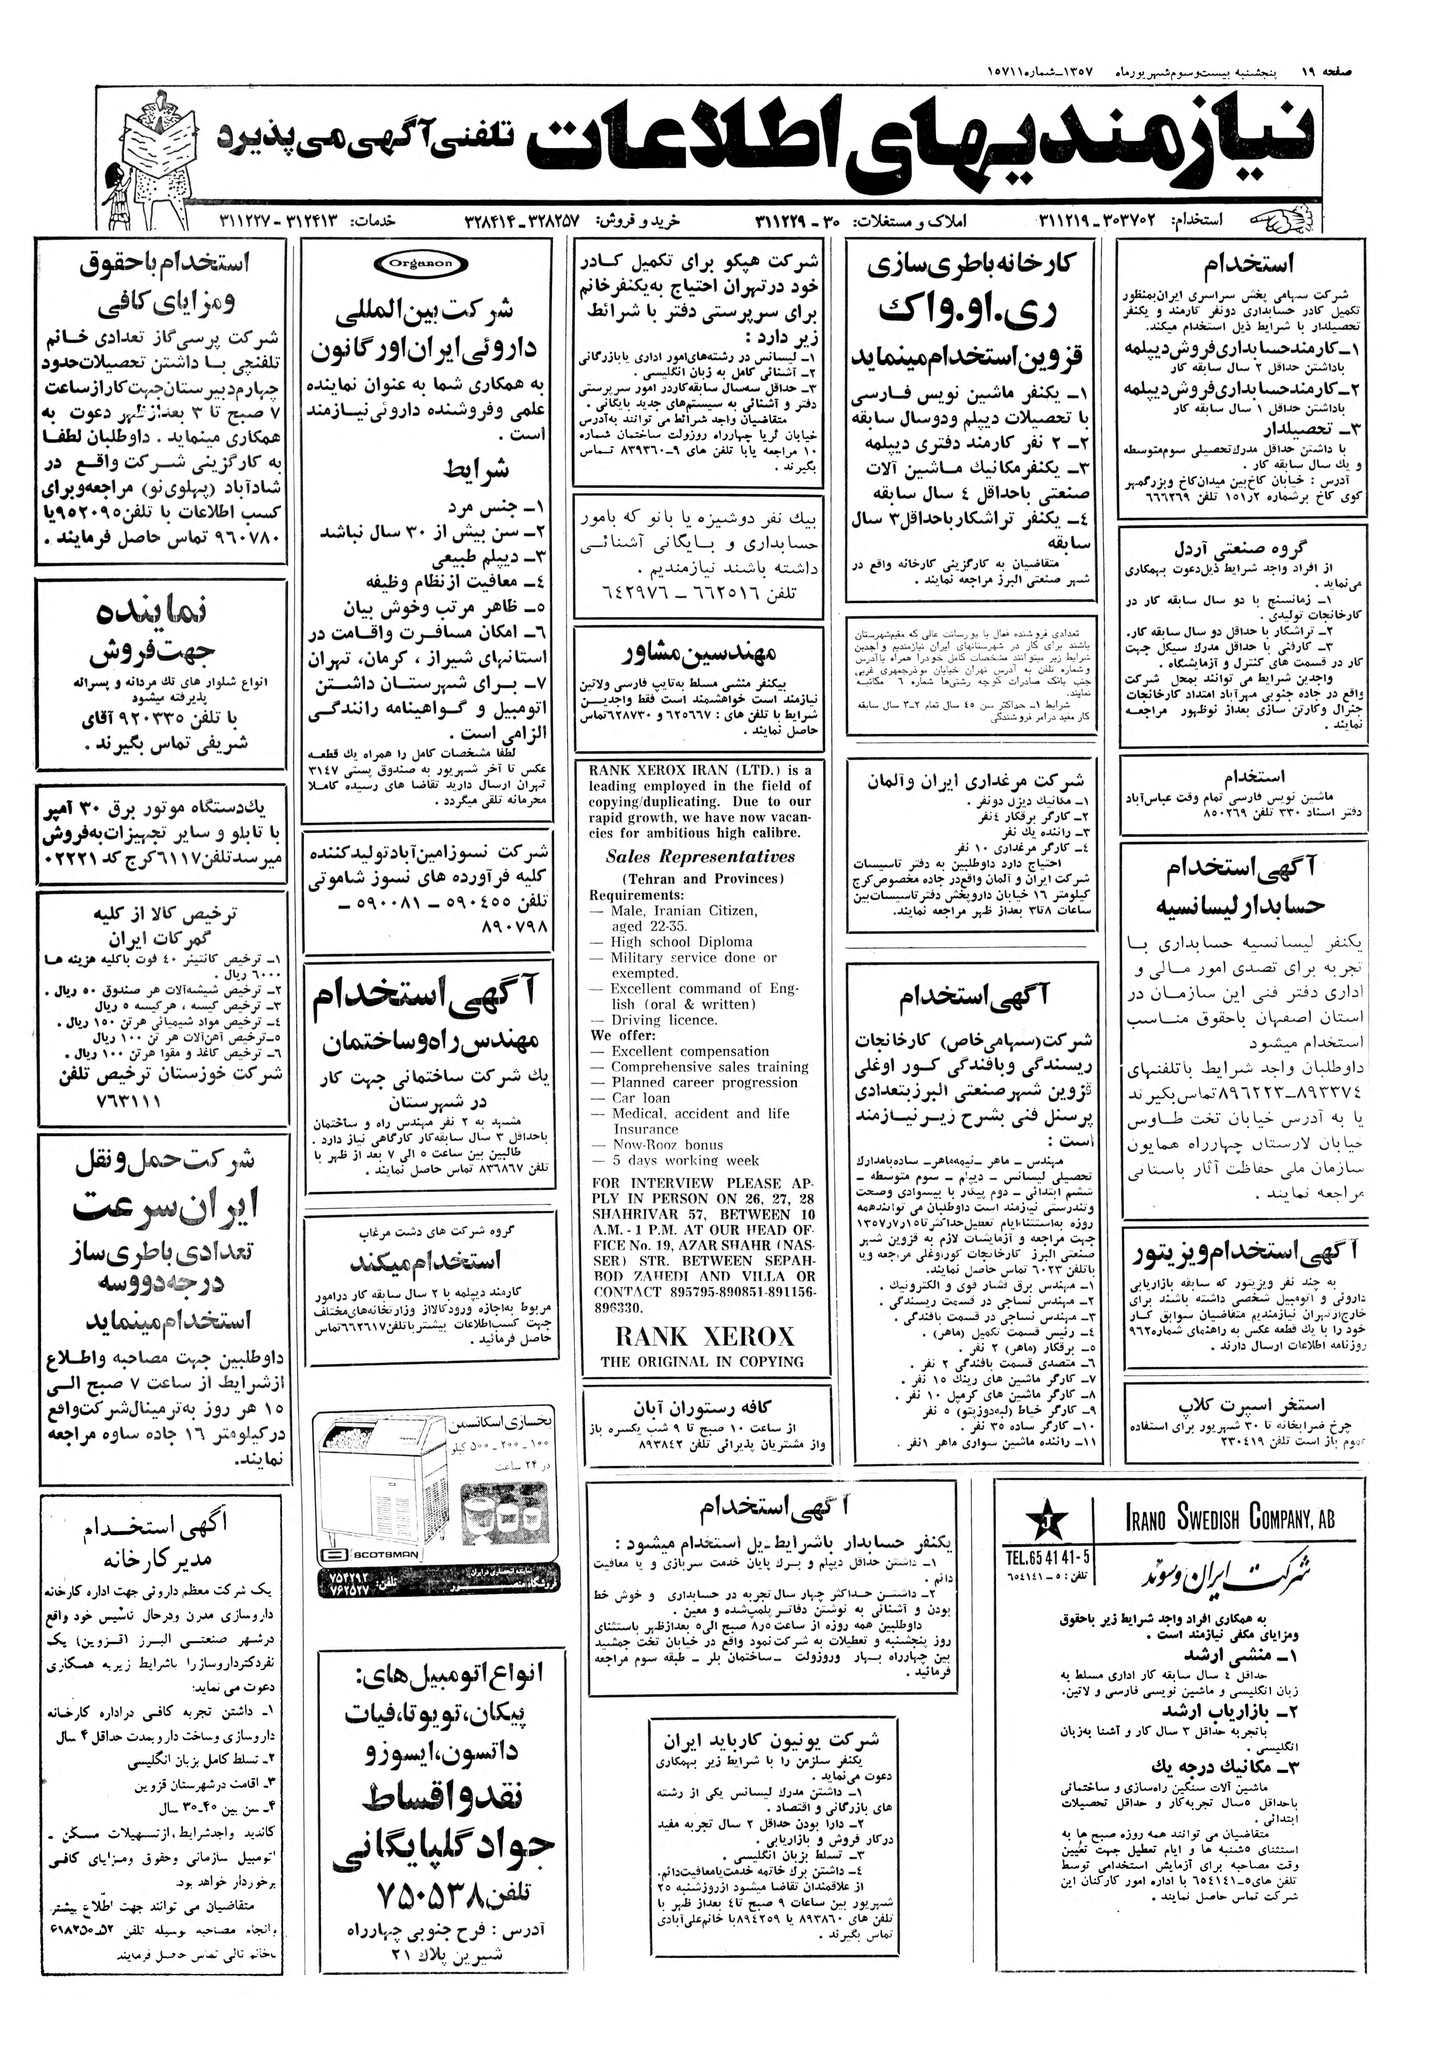 صفحه ۱۹ پنجشنبه بیست و سوم شهریورماه ۱۳۵۷ـ شماره ۱۵۷۱۱
نیازمندیهای اطلاعات تلفنی آگهی می‌پذیرد
استخدام: ۳۰۳۷۰۲ـ۳۱۱۲۱۹ املاک و مستغلات: ۳۰ـ۳۱۱۲۲۹ خرید و فروش: ۳۲۸۲۵۷ـ۳۲۸۴۱۴ خدمات: ۳۱۲۴۱۳ـ۳۱۱۲۲۷
استخدام
شرکت سهامی پخش سراسری ایران بمنظور
تکمیل کادر حسابداری دونفر کارمند و یکنفر
تحصیلدار با شرایط ذیل استخدام میکند.
۱ـ کارمند حسابداری فروش دیپلمه
باداشتن حداقل ۲ سال سابقه کار
۲ـ کارمند حسابداری فروش دیپلمه
باداشتن حداقل ۱ سال سابقه کار
۳ـ تحصیلدار
با داشتن حداقل مدرک تحصیلی سوم متوسطه
و یک سال سابقه کار .
آدرس : خیابان کاخ بین میدان کاخ و بزرگمهر
کوی کاخ برشماره ۲ر۱۵۱ تلفن ۶۶۶۲۶۹
گروه صنعتی آردل
از افراد واجد شرایط ذیل دعوت بهمکاری
می‌نماید .
۱ـ زمانسنج با دو سال سابقه کار در
کارخانجات تولیدی .
۲ـ تراشکار با حداقل دو سال سابقه کار.
۳ـ کارفنی با حداقل مدرک سیکل جهت
کار در قسمت های کنترل و آزمایشگاه .
واجدین شرایط می توانند بمحل شرکت
واقع در جاده جنوبی مهرآباد امتداد کارخانجات
جنرال و کارتن سازی بعداز نوظهور مراجعه
نمایند .
استخدام
ماشین نویس فارسی تمام وقت عباس‌آباد
دفتر اسناد ۳۳۰ تلفن ۸۵۰۲۶۹
آگهی استخدام
حسابدار لیسانسیه
یکنفر لیسانسیه حسابداری با
تجربه برای تصدی امور مالی و
اداری دفتر فنی این سازمان در
استان اصفهان باحقوق مناسب
استخدام میشود
داوطلبان واجد شرایط با تلفنهای
۸۹۳۳۷۴ـ۸۹۶۲۲۳ تماس بگیرند
یا به آدرس خیابان تخت طاوس
خیابان لارستان چهارراه همایون
سازمان ملی حفاظت آثار باستانی
مراجعه نمایند .
آگهی استخدام ویزیتور
به چند نفر ویزیتور که سابقه بازاریابی
داروئی و اتومبیل شخصی داشته باشند برای
خارج از تهران نیازمندیم متقاضیان سوابق کار
خود را با یک قطعه عکس به راهنمای شماره ۹۶۲
روزنامه اطلاعات ارسال دارند .
استخر اسپرت کلاپ
چرخ ضرابخانه تا ۳۰ شهریور برای استفاده
عموم باز است تلفن ۲۳۰۴۱۹
کارخانه باطری سازی
ری.او.واک
قزوین استخدام مینماید
۱ـ یکنفر ماشین نویس فارسی
با تحصیلات دیپلم ودوسال سابقه
۲ـ ۲ نفر کارمند دفتری دیپلمه
۳ـ یکنفر مکانیک ماشین آلات
صنعتی باحداقل ۴ سال سابقه
۴ـ یکنفر تراشکار باحداقل ۳ سال
سابقه
متقاضیان به کارگزینی کارخانه واقع در
شهر صنعتی البرز مراجعه نمایند .
تعدادی فروشنده فعال با پورسانت عالی که مقیم شهرستان
باشند برای کار در شهرستانهای ایران نیازمندیم واجدین
شرایط زیر میتوانند مشخصات کامل خود را همراه با آدرس
و شماره تلفن به آدرس تهران خیابان بوذرجمهری غربی
جنب بانک صادرات کوچه رشتی‌ها شماره ۶ مکاتبه
نمایند
شرایط ۱ـ حداکثر سن ۴۵ سال تمام ۲ـ۳ سال سابقه
کار مفید در امر فروشندگی
شرکت مرغداری ایران و آلمان
۱ـ مکانیک دیزل دونفر .
۲ـ کارگر برقکار ۴نفر
۳ـ راننده یک نفر
۴ـ کارگر مرغداری ۱۰ نفر
احتیاج دارد داوطلبین به دفتر تاسیسات
شرکت ایران و آلمان واقع در جاده مخصوص کرج
کیلومتر ۱۶ خیابان داروپخش دفتر تاسیسات بین
ساعات ۸تا۳ بعداز ظهر مراجعه نمایند.
آگهی استخدام
شرکت (سهامی خاص) کارخانجات
ریسندگی وبافندگی کور اوغلی
قزوین شهر صنعتی البرز بتعدادی
پرسنل فنی بشرح زیر نیازمند
است :
مهندس ـ ماهر ـ نیمه‌ماهر ـ ساده بامدارک
تحصیلی لیسانس ـ دیپلم ـ سوم متوسطه ـ
ششم ابتدائی ـ دوم پیکار با بیسوادی وصحت
وتندرستی نیازمند است داوطلبان می توانند همه
روزه به‌استثناء ایام تعطیل حداکثر تا ۱۵ر۷ر۱۳۵۷
جهت مراجعه و آزمایشات لازم به قزوین شهر
صنعتی البرز کارخانجات کوراوغلی مراجعه ویا
با تلفن ۶۰۲۳ تماس حاصل نمایند.
۱ـ مهندس برق فشار قوی و الکترونیک .
۲ـ مهندس نساجی در قسمت ریسندگی .
۳ـ مهندس نساجی در قسمت بافندگی .
۴ـ رئیس قسمت تکمیل (ماهر) .
۵ـ برقکار (ماهر) ۲ نفر .
۶ـ متصدی قسمت بافندگی ۲ نفر .
۷ـ کارگر ماشین های رینگ ۱۵ نفر .
۸ـ کارگر ماشین های کرمپل ۱۰ نفر .
۹ـ کارگر خیاط (لبه‌دوزپتو) ۵ نفر
۱۰ـ کارگر ساده ۳۵ نفر .
۱۱ـ راننده ماشین سواری ماهر ۱نفر .
شرکت هپکو برای تکمیل کادر
خود درتهران احتیاج به یکنفر خانم
برای سرپرستی دفتر با شرائط
زیر دارد :
۱ـ لیسانس در رشته‌های امور اداری یا بازرگانی
۲ـ آشنائی کامل به زبان انگلیسی .
۳ـ حداقل سه‌سال سابقه کار در امور سرپرستی
دفتر و آشنائی به سیستم‌های جدید بایگانی .
متقاضیان واجد شرائط می توانند به‌آدرس
خیابان ثریا چهارراه روزولت ساختمان شماره
۱۰ مراجعه یا با تلفن های ۹ـ۸۳۹۳۶۰ تماس
بگیرند .
بیک نفر دوشیزه یا بانو که بامور
حسابداری و بایگانی آشنائی
داشته باشند نیازمندیم .
تلفن ۶۶۲۵۱۶ ـ ۶۴۲۹۷۶
مهندسین مشاور
بیکنفر منشی مسلط به‌تایپ فارسی ولاتین
نیازمند است خواهشمند است فقط واجدین
شرایط با تلفن های : ۶۲۵۶۶۷و۶۲۸۷۳۰تماس
حاصل نمایند .
RANK XEROX IRAN (LTD.) is a
leading employed in the field of
copying/duplicating. Due to our
rapid growth, we have now vacan-
cies for ambitious high calibre.
Sales Representatives
(Tehran and Provinces)
Requirements:
— Male, Iranian Citizen,
aged 22-35.
— High school Diploma
— Military service done or
exempted.
— Excellent command of Eng-
lish (oral & written)
— Driving licence.
We offer:
— Excellent compensation
— Comprehensive sales training
— Planned career progression
— Car loan
— Medical, accident and life
Insurance
— Now-Rooz bonus
— 5 days working week
FOR INTERVIEW PLEASE AP-
PLY IN PERSON ON 26, 27, 28
SHAHRIVAR 57, BETWEEN 10
A.M. - 1 P.M. AT OUR HEAD OF-
FICE No. 19, AZAR SHAHR (NAS-
SER) STR. BETWEEN SEPAH-
BOD ZAHEDI AND VILLA OR
CONTACT 895795-890851-891156-
896330.
RANK XEROX
THE ORIGINAL IN COPYING
کافه رستوران آبان
از ساعت ۱۰ صبح تا ۹ شب یکسره باز
واز مشتریان پذیرائی تلفن ۸۹۳۸۴۲
Organon
شرکت بین‌المللی
داروئی ایران اورگانون
به همکاری شما به عنوان نماینده
علمی وفروشنده داروئی نیازمند
است .
شرایط
۱ـ جنس مرد
۲ـ سن بیش از ۳۰ سال نباشد
۳ـ دیپلم طبیعی
۴ـ معافیت از نظام وظیفه
۵ـ ظاهر مرتب وخوش بیان
۶ـ امکان مسافرت واقامت در
استانهای شیراز ، کرمان، تهران
۷ـ برای شهرستان داشتن
اتومبیل و گواهینامه رانندگی
الزامی است .
لطفا مشخصات کامل را همراه یک قطعه
عکس تا آخر شهریور به صندوق پستی ۳۱۴۷
تهران ارسال دارید تقاضا های رسیده کاملا
محرمانه تلقی میگردد .
شرکت نسوز امین‌آباد تولید کننده
کلیه فرآورده های نسوز شاموتی
تلفن ۵۹۰۴۵۵ ـ ۵۹۰۰۸۱ ـ
۸۹۰۷۹۸
آگهی استخدام
مهندس راه و ساختمان
یک شرکت ساختمانی جهت کار
در شهرستان
مشهد به ۲ نفر مهندس راه و ساختمان
باحداقل ۳ سال سابقه کار کارگاهی نیاز دارد .
طالبین بین ساعت ۵ الی ۷ بعد از ظهر با
تلفن ۸۳۶۸۶۷ تماس حاصل نمایند .
گروه شرکت های دشت مرغاب
استخدام میکند
کارمند دیپلمه با ۲ سال سابقه کار در امور
مربوط به‌اجازه ورود کالا از وزارتخانه‌های مختلف
جهت کسب اطلاعات بیشتر با تلفن ۶۶۲۶۱۷ تماس
حاصل فرمائید .
یخسازی اسکاتسمن
۱۰۰ ـ ۲۰۰ ـ ۵۰۰ کیلو
در ۲۴ ساعت
SCOTSMAN
نماینده انحصاری در ایران
تلفن: ۷۵۴۲۹۲
۷۶۲۵۲۷
انواع اتومبیل های:
پیکان، تویوتا، فیات
داتسون، ایسوزو
نقد و اقساط
جواد گلپایگانی
تلفن ۷۵۰۵۳۸
آدرس : فرح جنوبی چهارراه
شیرین پلاک ۲۱
استخدام با حقوق
و مزایای کافی
شرکت پرسی گاز تعدادی خانم
تلفنچی با داشتن تحصیلات حدود
چهارم دبیرستان جهت کار از ساعت
۷ صبح تا ۳ بعداز ظهر دعوت به
همکاری مینماید . داوطلبان لطفا
به کارگزینی شرکت واقع در
شادآباد (پهلوی‌نو) مراجعه و برای
کسب اطلاعات با تلفن ۹۵۲۰۹۵ یا
۹۶۰۷۸۰ تماس حاصل فرمایند .
نماینده
جهت فروش
انواع شلوار های تک مردانه و پسرانه
پذیرفته میشود
با تلفن ۹۲۰۳۳۵ آقای
شریفی تماس بگیرند .
یک دستگاه موتور برق ۳۰ آمپر
با تابلو و سایر تجهیزات به فروش
میرسد تلفن ۶۱۱۷ کرج کد ۰۲۲۲۱
ترخیص کالا از کلیه
گمرکات ایران
۱ـ ترخیص کانتینر ۴۰ فوت باکلیه هزینه ها
۶۰۰۰ ریال .
۲ـ ترخیص شیشه‌آلات هر صندوق ۵۰ ریال .
۳ـ ترخیص کیسه ، هرکیسه ۵ ریال
۴ـ ترخیص مواد شیمیائی هرتن ۱۵۰ ریال .
۵ـ ترخیص آهن‌آلات هر تن ۱۰۰ ریال
۶ـ ترخیص کاغذ و مقوا هرتن ۱۰۰ ریال .
شرکت خوزستان ترخیص تلفن
۷۶۳۱۱۱
شرکت حمل و نقل
ایران سرعت
تعدادی باطری ساز
درجه دو و سه
استخدام مینماید
داوطلبین جهت مصاحبه و اطلاع
از شرایط از ساعت ۷ صبح الی
۱۵ هر روز به ترمینال شرکت واقع
در کیلومتر ۱۶ جاده ساوه مراجعه
نمایند.
آگهی استخدام
مدیر کارخانه
یک شرکت معظم داروئی جهت اداره کارخانه
داروسازی مدرن ودرحال تأسیس خود واقع
درشهر صنعتی البرز (قزوین) یک
نفر دکتر داروساز را باشرایط زیر به همکاری
دعوت می نماید:
۱ـ داشتن تجربه کافی در اداره کارخانه
داروسازی وساخت دارو بمدت حداقل ۴ سال
۲ـ تسلط کامل بزبان انگلیسی
۳ـ اقامت درشهرستان قزوین
۴ـ سن بین ۴۰ـ۳۰ سال
کاندید واجد شرایط ، از تسهیلات مسکن ـ
اتومبیل سازمانی وحقوق ومزایای کافی
برخوردار خواهد بود.
متقاضیان می توانند جهت اطلاع بیشتر
وانجام مصاحبه بوسیله تلفن ۵۲ـ۶۱۸۲۵۰
باخانم تالی تماس حاصل فرمایند
آگهی استخدام
یکنفر حسابدار باشرایط ذیل استخدام میشود :
۱ـ داشتن حداقل دیپلم و برگ پایان خدمت سربازی و یا معافیت
دائم .
۲ـ داشتن حداکثر چهار سال تجربه در حسابداری و خوش خط
بودن و آشنائی به نوشتن دفاتر پلمپ‌شده و معین .
داوطلبین همه روزه از ساعت ۸ر۵ صبح الی۵ بعدازظهر باستثنای
روز پنجشنبه و تعطیلات به شرکت نمود واقع در خیابان تخت جمشید
بین چهارراه بهار وروزولت ـ ساختمان بلر ـ طبقه سوم مراجعه
فرمائید .
شرکت یونیون کارباید ایران
یکنفر سلزمن را با شرایط زیر بهمکاری
دعوت می‌نماید .
۱ـ داشتن مدرک لیسانس یکی از رشته
های بازرگانی و اقتصاد .
۲ـ دارا بودن حداقل ۲ سال تجربه مفید
درکار فروش و بازاریابی .
۳ـ تسلط بزبان انگلیسی .
۴ـ داشتن برگ خاتمه خدمت یا معافیت دائم.
از علاقمندان تقاضا میشود ازروز شنبه ۲۵
شهریور بین ساعات ۹ صبح تا۴ بعداز ظهر با
تلفن های ۸۹۳۸۶۰ یا ۸۹۴۲۵۹ با خانم علی‌آبادی
تماس بگیرند .
IRANO SWEDISH COMPANY, AB
TEL. 65 41 41 - 5
تلفن : ۵ ـ ۶۵۴۱۴۱
شرکت ایران و سوئد
به همکاری افراد واجد شرایط زیر باحقوق
ومزایای مکفی نیازمند است .
۱ـ منشی ارشد
حداقل ۴ سال سابقه کار اداری مسلط به
زبان انگلیسی و ماشین نویسی فارسی و لاتین.
۲ـ بازاریاب ارشد
باتجربه حداقل ۳ سال کار و آشنا به‌زبان
انگلیسی .
۳ـ مکانیک درجه یک
ماشین آلات سنگین راه‌سازی و ساختمانی
باحداقل ۵سال تجربه کار و حداقل تحصیلات
ابتدائی .
متقاضیان می توانند همه روزه صبح ها به
استثنای ۵شنبه ها و ایام تعطیل جهت تعیین
وقت مصاحبه برای آزمایش استخدامی توسط
تلفن های۵ـ۶۵۴۱۴۱ با اداره امور کارکنان این
شرکت تماس حاصل نمایند .